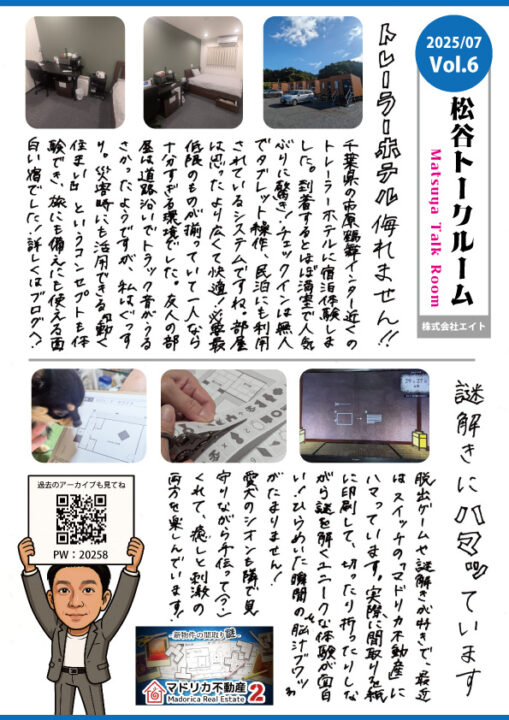 2025/07
Vol.6
松谷トークルーム
Matsuya Talk Room
株式会社エイト
トレーラーホテル侮れません!!
千葉県の市原鶴舞インター近くの
トレーラーホテルに宿泊体験しま
した。到着するとほぼ満室で人気
ぶりに驚き!チェックインは無人
でタブレット操作、民泊にも利用
されているシステムですね。部屋
は思ったより広くて快適!必要最
低限のものが揃っていて一人なら
十分すぎる環境でした。友人の部
屋は道路沿いでトラック音がうる
さかったようですが、私はぐっす
り。災害時にも活用できる『動く
住まい』というコンセプトも体
験でき、旅にも備えにも使える面
白い宿でした!詳しくはブログへ
謎解きにハマッています
脱出ゲームや謎解きが好きで、最近
はスイッチの『マドリカ不動産』に
ハマっています。実際に間取りを紙
に印刷して、切ったり折ったりしな
がら謎を解くユニークな体験が面白
い!ひらめいた瞬間の“脳汁ブワッ”
がたまりません!
愛犬のシオンも隣で見
守りながら手伝って(?)
くれて、癒しと刺激の
両方を楽しんでいます!
過去のアーカイブも見てね
PW:20258
新物件の間取り謎
マドリカ不動産2
Madorica Real Estate